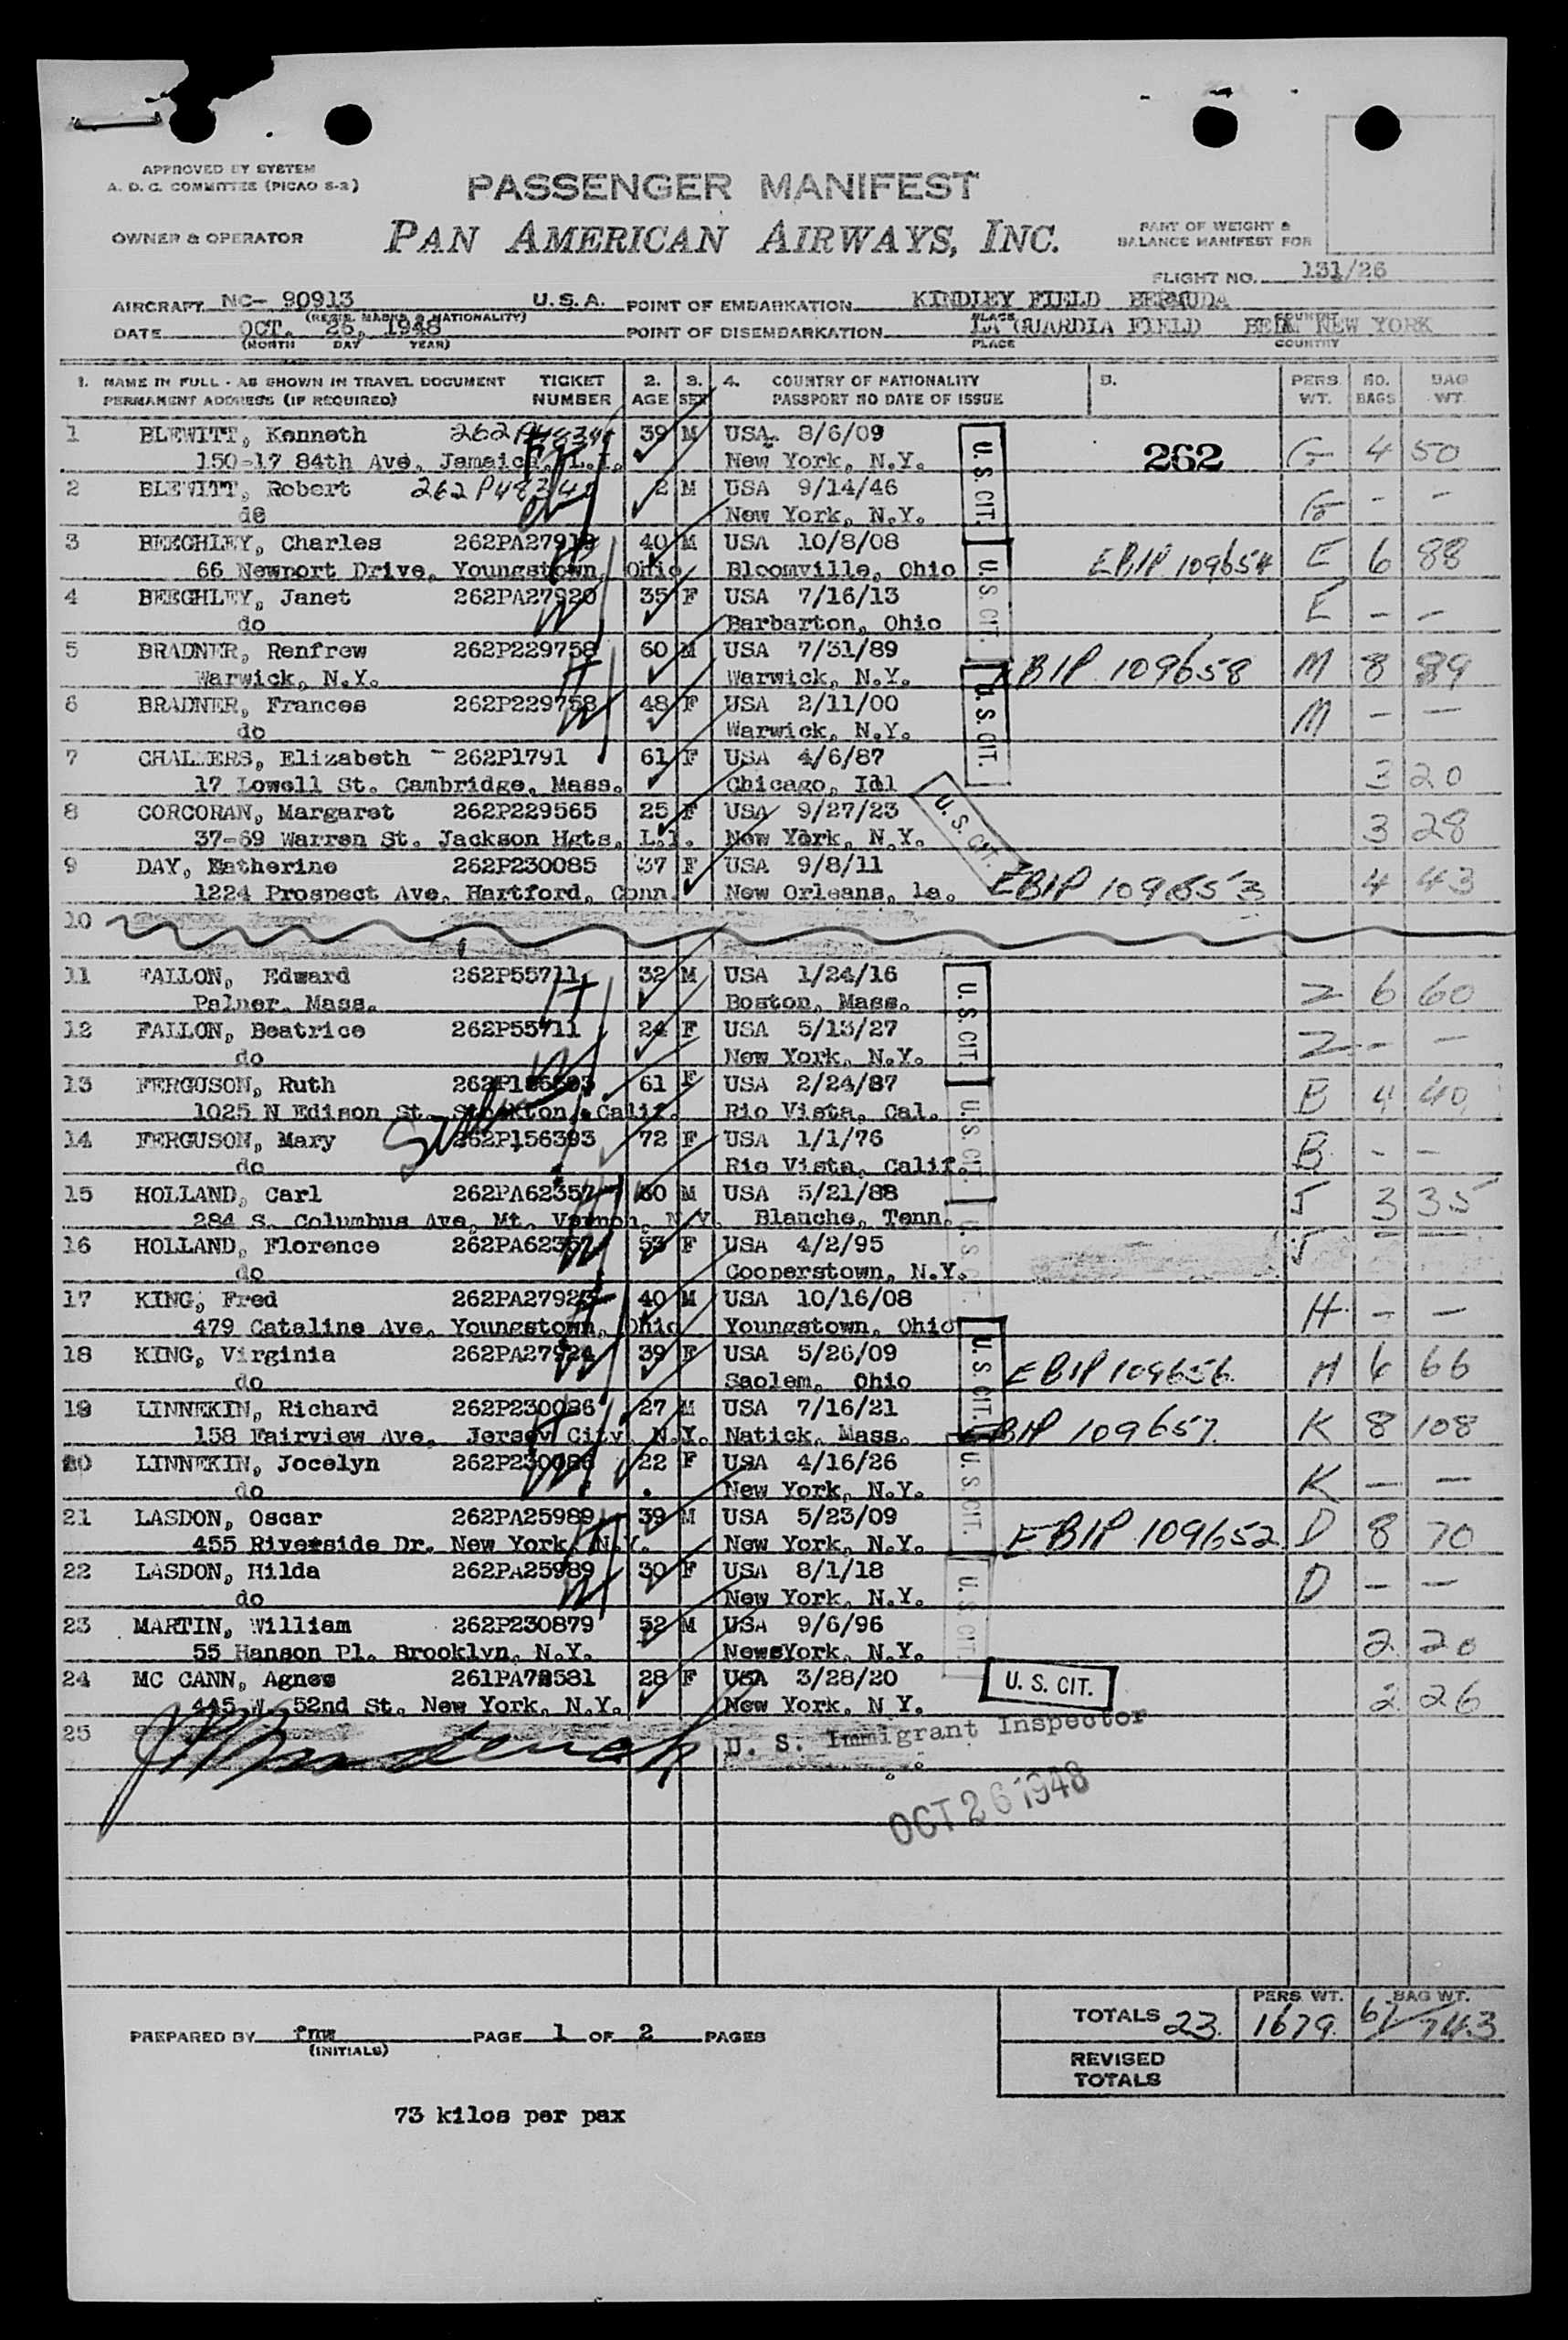 APPROVED BY SYSTEM
A. D. C. COMMITTEE (PICAO S-2)
PASSENGER MANIFEST
OWNER & OPERATOR
PAN AMERICAN AIRWAYS, INC.
PART OF WEIGHT &
BALANCE MANIFEST FOR
FLIGHT NO. 131/26
AIRCRAFT NC- 90913 U.S.A. POINT OF EMBARKATION KINDLEY FIELD BERMUDA
(REGIS. MARKS & NATIONALITY) PLACE COUNTRY
DATE OCT. 26, 1948 POINT OF DISEMBARKATION LA GUARDIA FIELD NEW YORK
(MONTH DAY YEAR) PLACE COUNTRY
1. NAME IN FULL - AS SHOWN IN TRAVEL DOCUMENT TICKET 2. 3. 4. COUNTRY OF NATIONALITY 5. PERS. NO. BAG
PERMANENT ADDRESS (IF REQUIRED) NUMBER AGE SEX PASSPORT NO DATE OF ISSUE WT. BAGS WT.
1 BLEWITT, Kenneth 39 M USA 8/6/09 262 G 4 50
150-17 84th Ave. Jamaica, L.I. New York, N.Y. U.S. CIT.
2 BLEWITT, Robert 2 M USA 9/14/46 G - -
do New York, N.Y.
3 BEEGHLEY, Charles 262PA27919 40 M USA 10/8/08 EBIP 109654 E 6 88
66 Newport Drive, Youngstown, Ohio Bloomville, Ohio U.S. CIT.
4 BEEGHLEY, Janet 262PA27920 35 F USA 7/16/13 E - -
do Barbarton, Ohio
5 BRADNER, Renfrew 262P229758 60 M USA 7/31/89 EBIP 109658 M 8 89
Warwick, N.Y. Warwick, N.Y. U.S. CIT.
6 BRADNER, Frances 262P229758 48 F USA 2/11/00 M - -
do Warwick, N.Y.
7 CHALMERS, Elizabeth - 262P1791 61 F USA 4/6/87 3 20
17 Lowell St. Cambridge, Mass. Chicago, Idl
8 CORCORAN, Margaret 262P229565 25 F USA 9/27/23 U.S. CIT. 3 28
37-69 Warren St. Jackson Hgts, L.I. New York, N.Y.
9 DAY, Katherine 262P230085 37 F USA 9/8/11 4 43
1224 Prospect Ave, Hartford, Conn. New Orleans, La. EBIP 109653
10
11 FALLON, Edward 262P55711 32 M USA 1/24/16 Z 6 60
Palmer, Mass. Boston, Mass. U.S. CIT.
12 FALLON, Beatrice 262P55711 24 F USA 5/13/27 Z - -
do New York, N.Y.
13 FERGUSON, Ruth 61 F USA 2/24/87 B 4 40
1025 N Edison St. Stockton, Calif. Rio Vista, Cal. U.S. CIT.
14 FERGUSON, Mary 262P156393 72 F USA 1/1/76 B - -
do Rio Vista, Calif.
15 HOLLAND, Carl 262PA62357 60 M USA 5/21/88 J 3 35
284 S. Columbus Ave, Mt. Vernon, N.Y. Blanche, Tenn. U.S. CIT.
16 HOLLAND, Florence 262PA62357 53 F USA 4/2/95 J - -
do Cooperstown, N.Y.
17 KING, Fred 262PA27923 40 M USA 10/16/08 H - -
479 Cataline Ave, Youngstown, Ohio Youngstown, Ohio U.S. CIT.
18 KING, Virginia 262PA27924 39 F USA 5/26/09 EBIP 109656 H 6 66
do Saolem, Ohio
19 LINNEKIN, Richard 262P230086 27 M USA 7/16/21 EBIP 109657 K 8 108
158 Fairview Ave, Jersey City, N.Y. Natick, Mass. U.S. CIT.
20 LINNEKIN, Jocelyn 262P230086 22 F USA 4/16/26 K - -
do New York, N.Y.
21 LASDON, Oscar 262PA25989 39 M USA 5/23/09 EBIP 109652 D 8 70
455 Riverside Dr. New York, N.Y. New York, N.Y. U.S. CIT.
22 LASDON, Hilda 262PA25989 30 F USA 8/1/18 D - -
do New York, N.Y.
23 MARTIN, William 262P230879 52 M USA 9/6/96 2 20
55 Hanson Pl. Brooklyn, N.Y. NewsYork, N.Y.
24 MC CANN, Agnes 28 F USA 3/28/20 U. S. CIT. 2 26
445 W. 52nd St. New York, N.Y. New York, N Y.
25 U. S. Immigrant Inspector
OCT 26 1948
TOTALS 23 PERS. WT. 1679 BAG WT. 61/743
PREPARED BY fnw PAGE 1 OF 2 PAGES
(INITIALS)
REVISED
TOTALS
73 kilos per pax